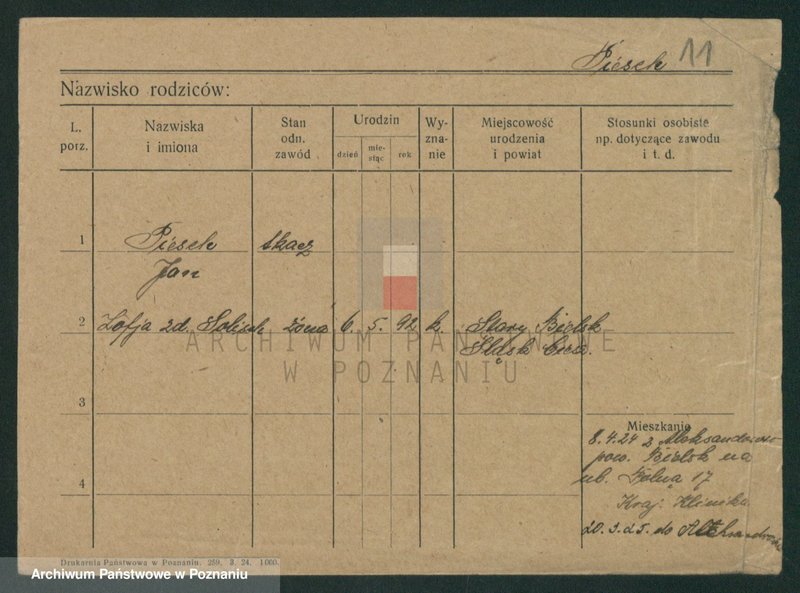 Piesch 11
Nazwisko rodziców:
L. porz.
Nazwiska i imiona
Stan odn. zawód
Urodzin
dzień
mie-siąc
rok
Wy-zna-nie
Miejscowość urodzenia i powiat
Stosunki osobiste np. dotyczące zawodu i t. d.
1 Piesch tkacz
Jan
2 Zofja zd. żona 6. 5. 92 k. Stary Bielsk
Śląsk Ciesz.
ARCHIWUM PAŃSTWOWE
W POZNANIU
3
4
Mieszkanie
8.4.24 z
pow. Bielsk na
ul. Polną 17
Kraj. Klinika
20.3.25. do
Drukarnia Państwowa w Poznaniu. 259. 3. 24. 1000.
Archiwum Państwowe w Poznaniu